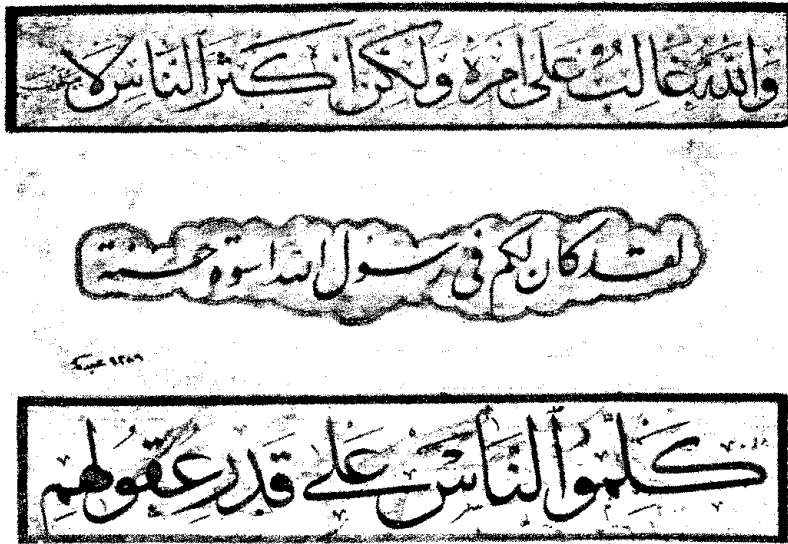 وَاللّٰهُ غَالِبٌ عَلٰى اَمْرِهٖ وَلٰكِنَّ اَكْثَرَ النَّاسِ لَا
لقد كان لكم في رسول الله اسوة حسنة
كَلِّمُوا النَّاسَ عَلٰى قَدْرِ عُقُولِهِمْ